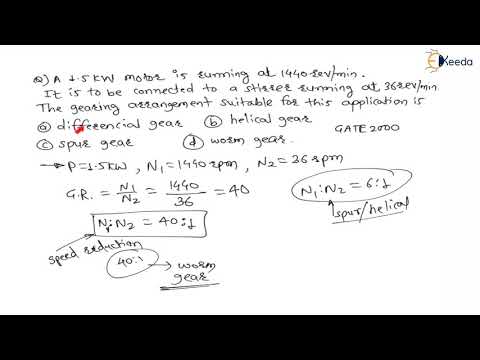 Ekeeda
Q) A 1.5 kW motor is running at 1440 rev/min.
It is to be connected to a stirrer running at 36 rev/min
The gearing arrangement suitable for this application is
ⓐ differencial gear ⓑ helical gear
GATE 2000
ⓒ spur gear ⓓ worm gear.
→ P = 1.5 kW, N₁ = 1440 rpm, N₂ = 36 rpm
G.R. = N₁/N₂ = 1440/36 = 40
N₁:N₂ = 6:1
spur/helical
N₁:N₂ = 40:1
speed reduction
40:1 → worm
gear